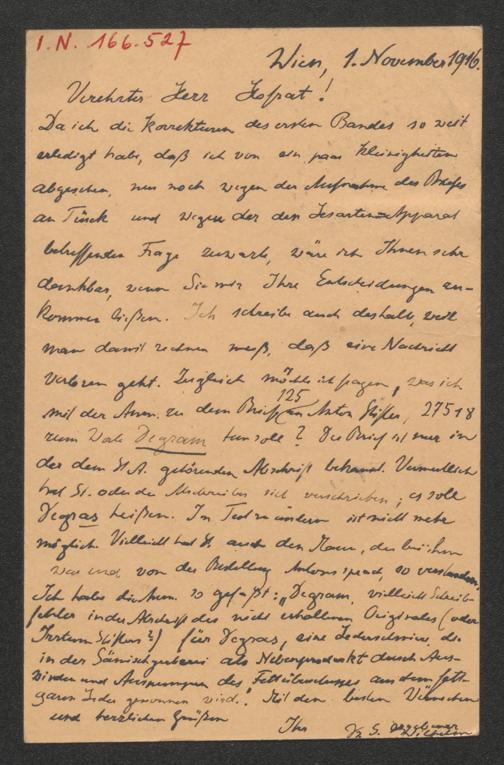 I. N. 166.527
Wien, 1. November 1916.
Verehrter Herr Hofrat!
Da ich die Korrekturen des ersten Bandes so weit
erledigt habe, daß ich von ein paar Kleinigkeiten
abgesehen, nur noch wegen der Aufnahme des Briefes
an Türck und wegen der den Lesarten-Apparat
betreffenden Frage zuwarte, wäre ich Ihnen sehr
dankbar, wenn Sie mir Ihre Entscheidungen zu-
kommen ließen. Ich schreibe auch deshalb, weil
man damit rechnen muß, daß eine Nachricht
verloren geht. Zugleich möchte ich fragen, was ich
mit der Anm. zu dem Brief 125 an Anton Stifter, 275 18
zum Worte Degram tun soll? Der Brief ist nur in
der dem St. A. gehörenden Abschrift bekannt. Vermutlich
hat St. oder der Abschreiber sich verschrieben; es soll
Degras heißen. Im Text zu ändern ist nicht mehr
möglich. Vielleicht hat St. auch den Mann, der bei ihm
war und von der Bestellung Antons sprach, so verstanden.
Ich habe die Anm. so gefaßt: „Degram, vielleicht Schreib-
fehler in der Abschrift des nicht erhaltenen Originales (oder
Irrtum Stifters?) für Degras, eine Lederschmiere, die
in der Sämischgerberei als Nebenprodukt durch Aus-
winden und Auspressen des Fettüberschusses aus dem fett-
garen Leder gewonnen wird." Mit den besten Wünschen
und herzlichen Grüßen
Ihr
Wilhelm